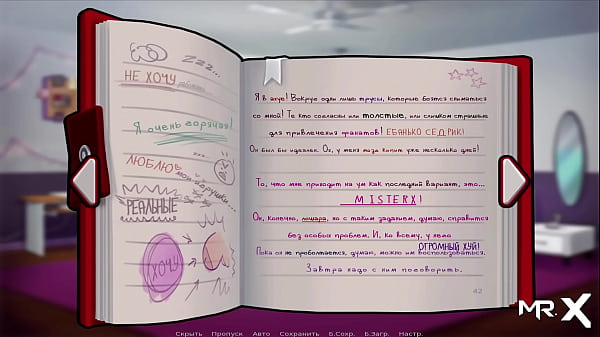 Zzz...
НЕ ХОЧУ
Я очень горячая!
ЛЮБЛЮ мои игрушки...
РЕАЛЬНЫЕ
ХОЧУ
Я в ахуе! Вокруг одни лишь трусы, которые боятся сниматься
со мной! Те кто согласны или толстые, или слишком страшные
для привлечения гранатов! ЕБАНЬКО СЕДРИК!
Он был бы идеален. Ох, у меня пизда кипит уже несколько дней!
То, что мне приходит на ум как последний вариант, это...
MISTERX!
Ох, конечно, лошара, но с таким заданием, думаю, справится
без особых проблем. И, ко всему, у него
ОГРОМНЫЙ ХУЙ!
Пока он не проболтается, думаю, можно им воспользоваться.
Завтра надо с ним поговорить.
42
MR.X
Скрыть Пропуск Авто Сохранить Б.Сохр. Б.Загр. Настр.